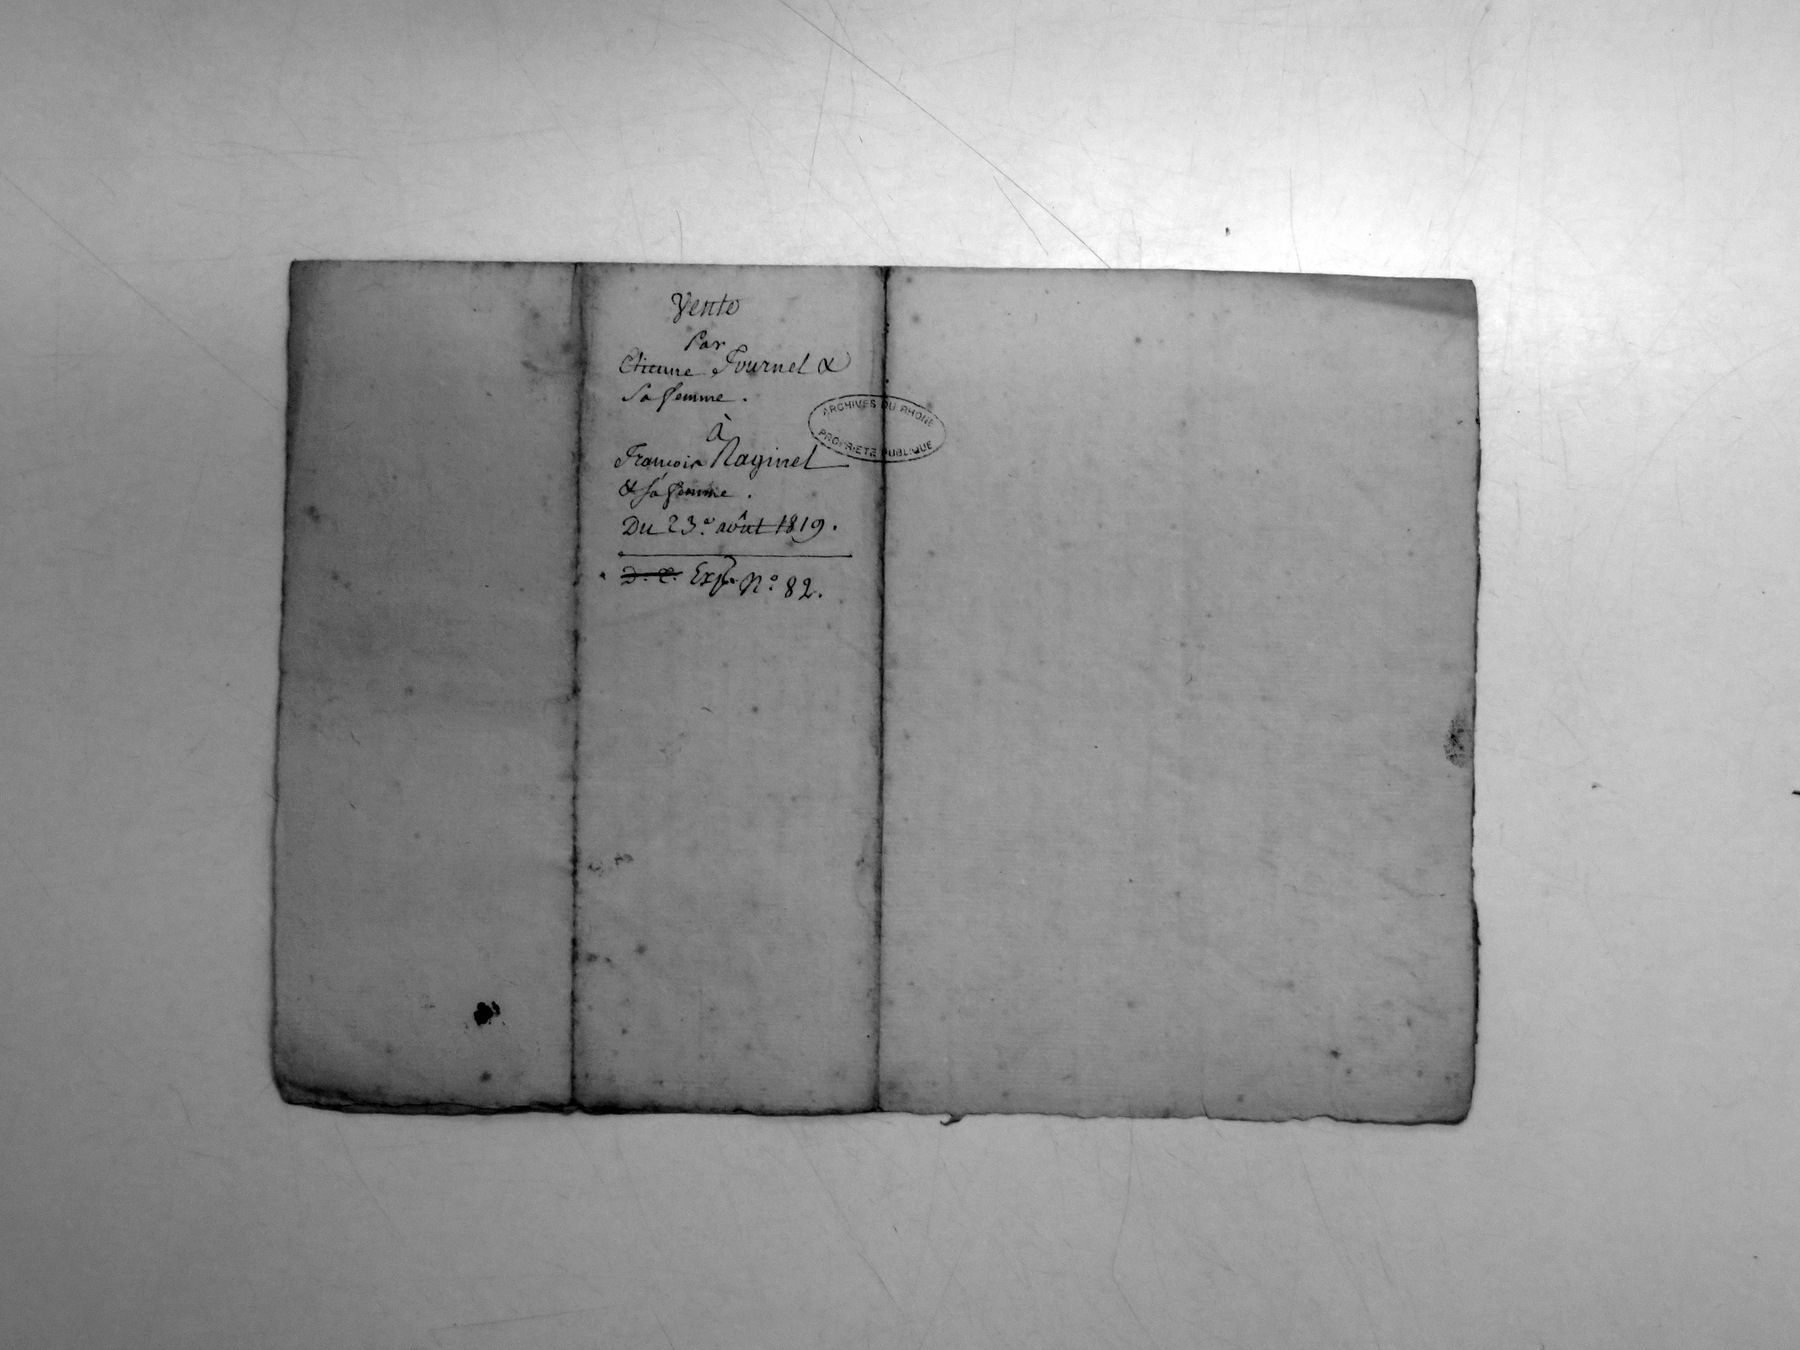 Vente
Par
Etienne Fournel &
Sa femme.
à
François Raginel
& Sa femme.
Du 23.e août 1819.
D. E. Exp.on N.o 82.
ARCHIVES DU RHONE
PROPRIETE PUBLIQUE